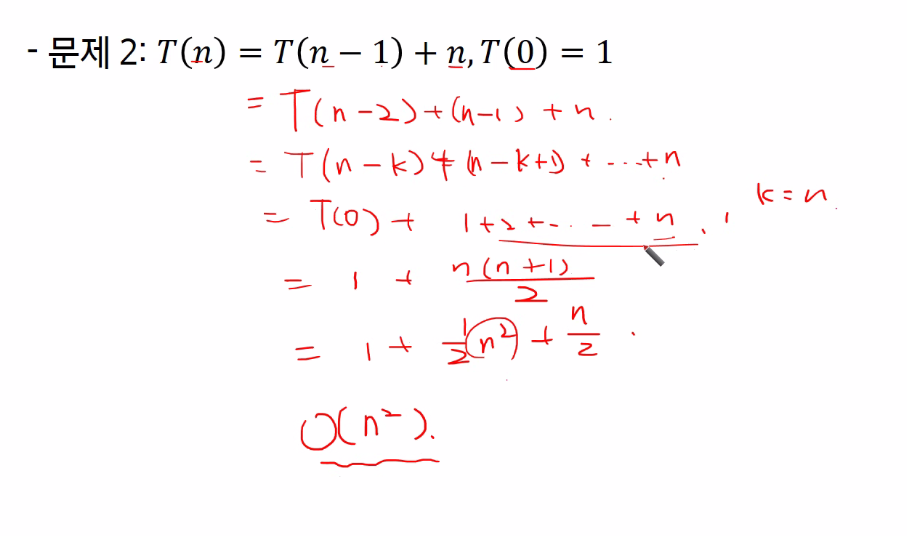 - 문제 2: T(n) = T(n − 1) + n, T(0) = 1
= T(n-2) + (n-1) + n.
= T(n-k) + (n-k+1) + ... + n
= T(0) + 1+2+... + n, k=n.
= 1 + n(n+1)/2
= 1 + 1/2 n² + n/2.
O(n²).